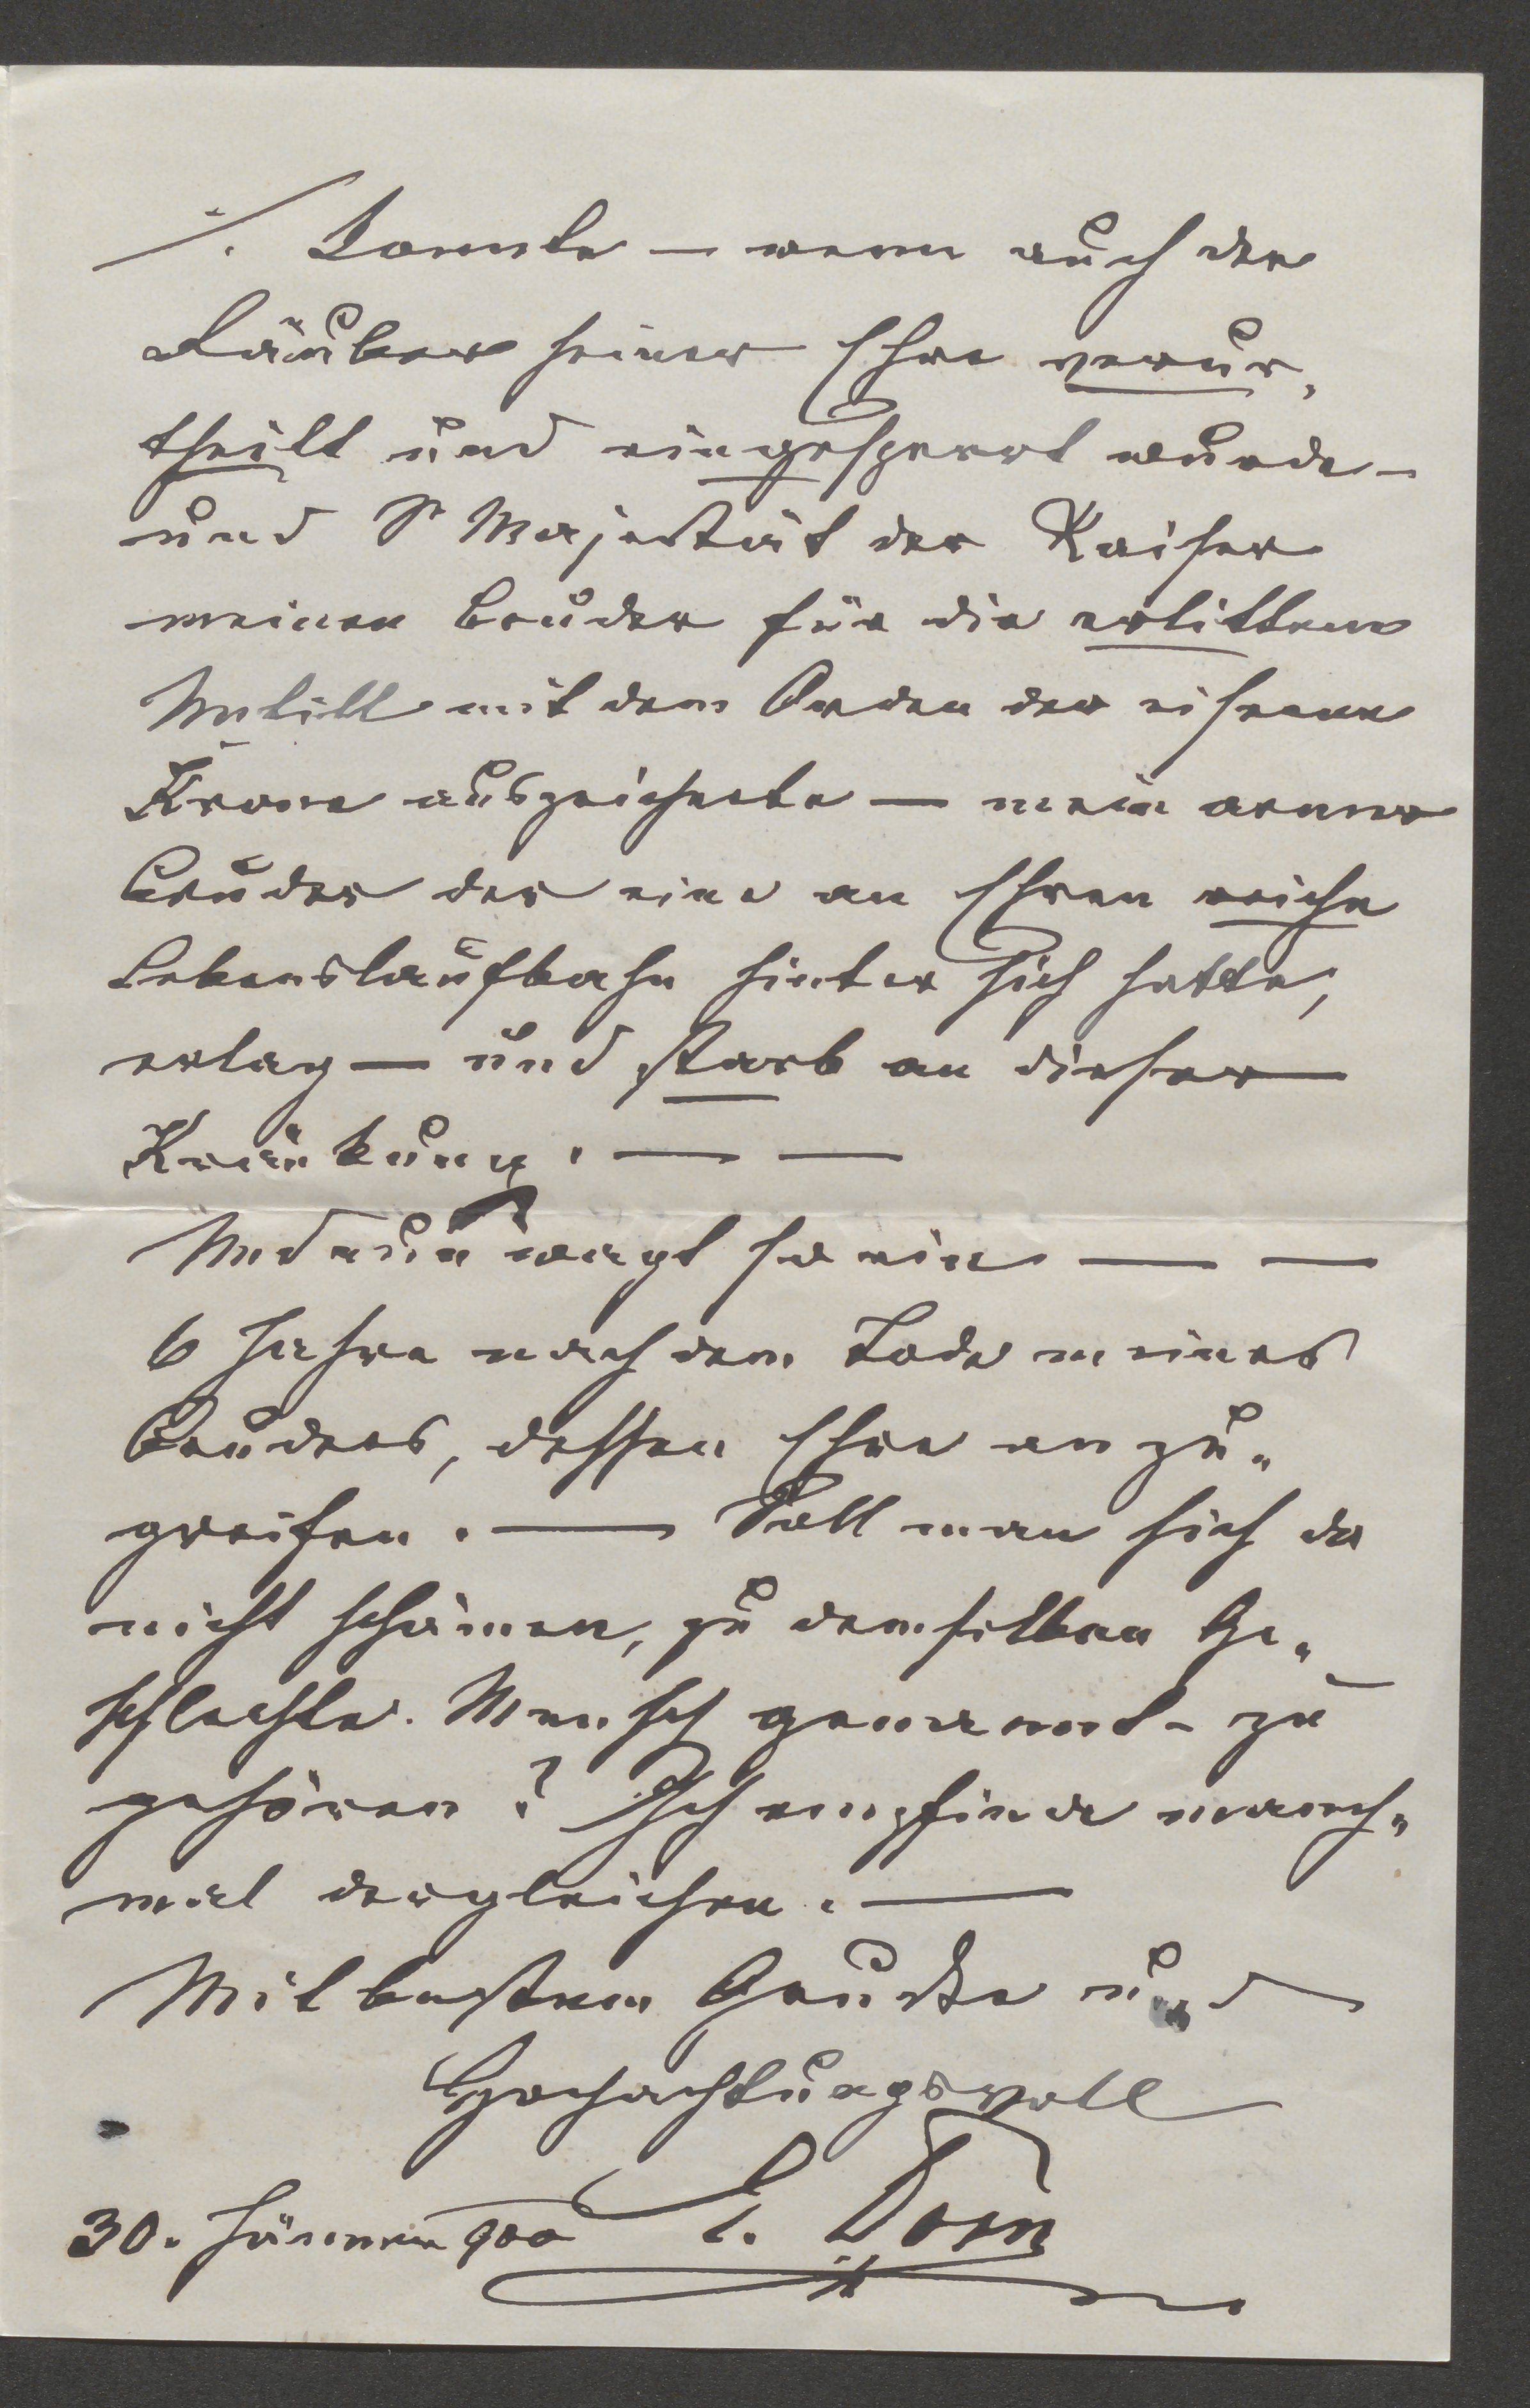 ./. konnte — wenn auch der
Räuber seiner Ehre verur-
theilt und eingesperrt wurde —
und Sr Majestät der Kaiser
meinen Bruder für die erlittene
Unbill mit dem Orden der eisernen
Krone auszeichnete — mein armer
Bruder der eine an Ehren reiche
Lebenslaufbahn hinter sich hatte,
erlag — und starb an dieser
Kränkung. — —
Und nun wagt so ein — —
6 Jahre nach dem Tode meines
Bruders, dessen Ehre anzu-
greifen. — Soll man sich da
nicht schämen, zu demselben Ge-
schlechte. Mensch genannt - zu
gehören? Ich empfinde manch-
mal dergleichen. —
Mit bestem Gruße und
Hochachtungsvoll
30. Jänner 900 E. Dorn